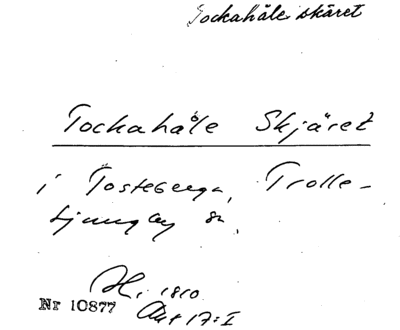 Tockahåle skäret
Tockahåle Skjäret
i Tosteberga, Trolle-
Ljungby sn,
Hi 1810
Nr 10877
Akt 17:I